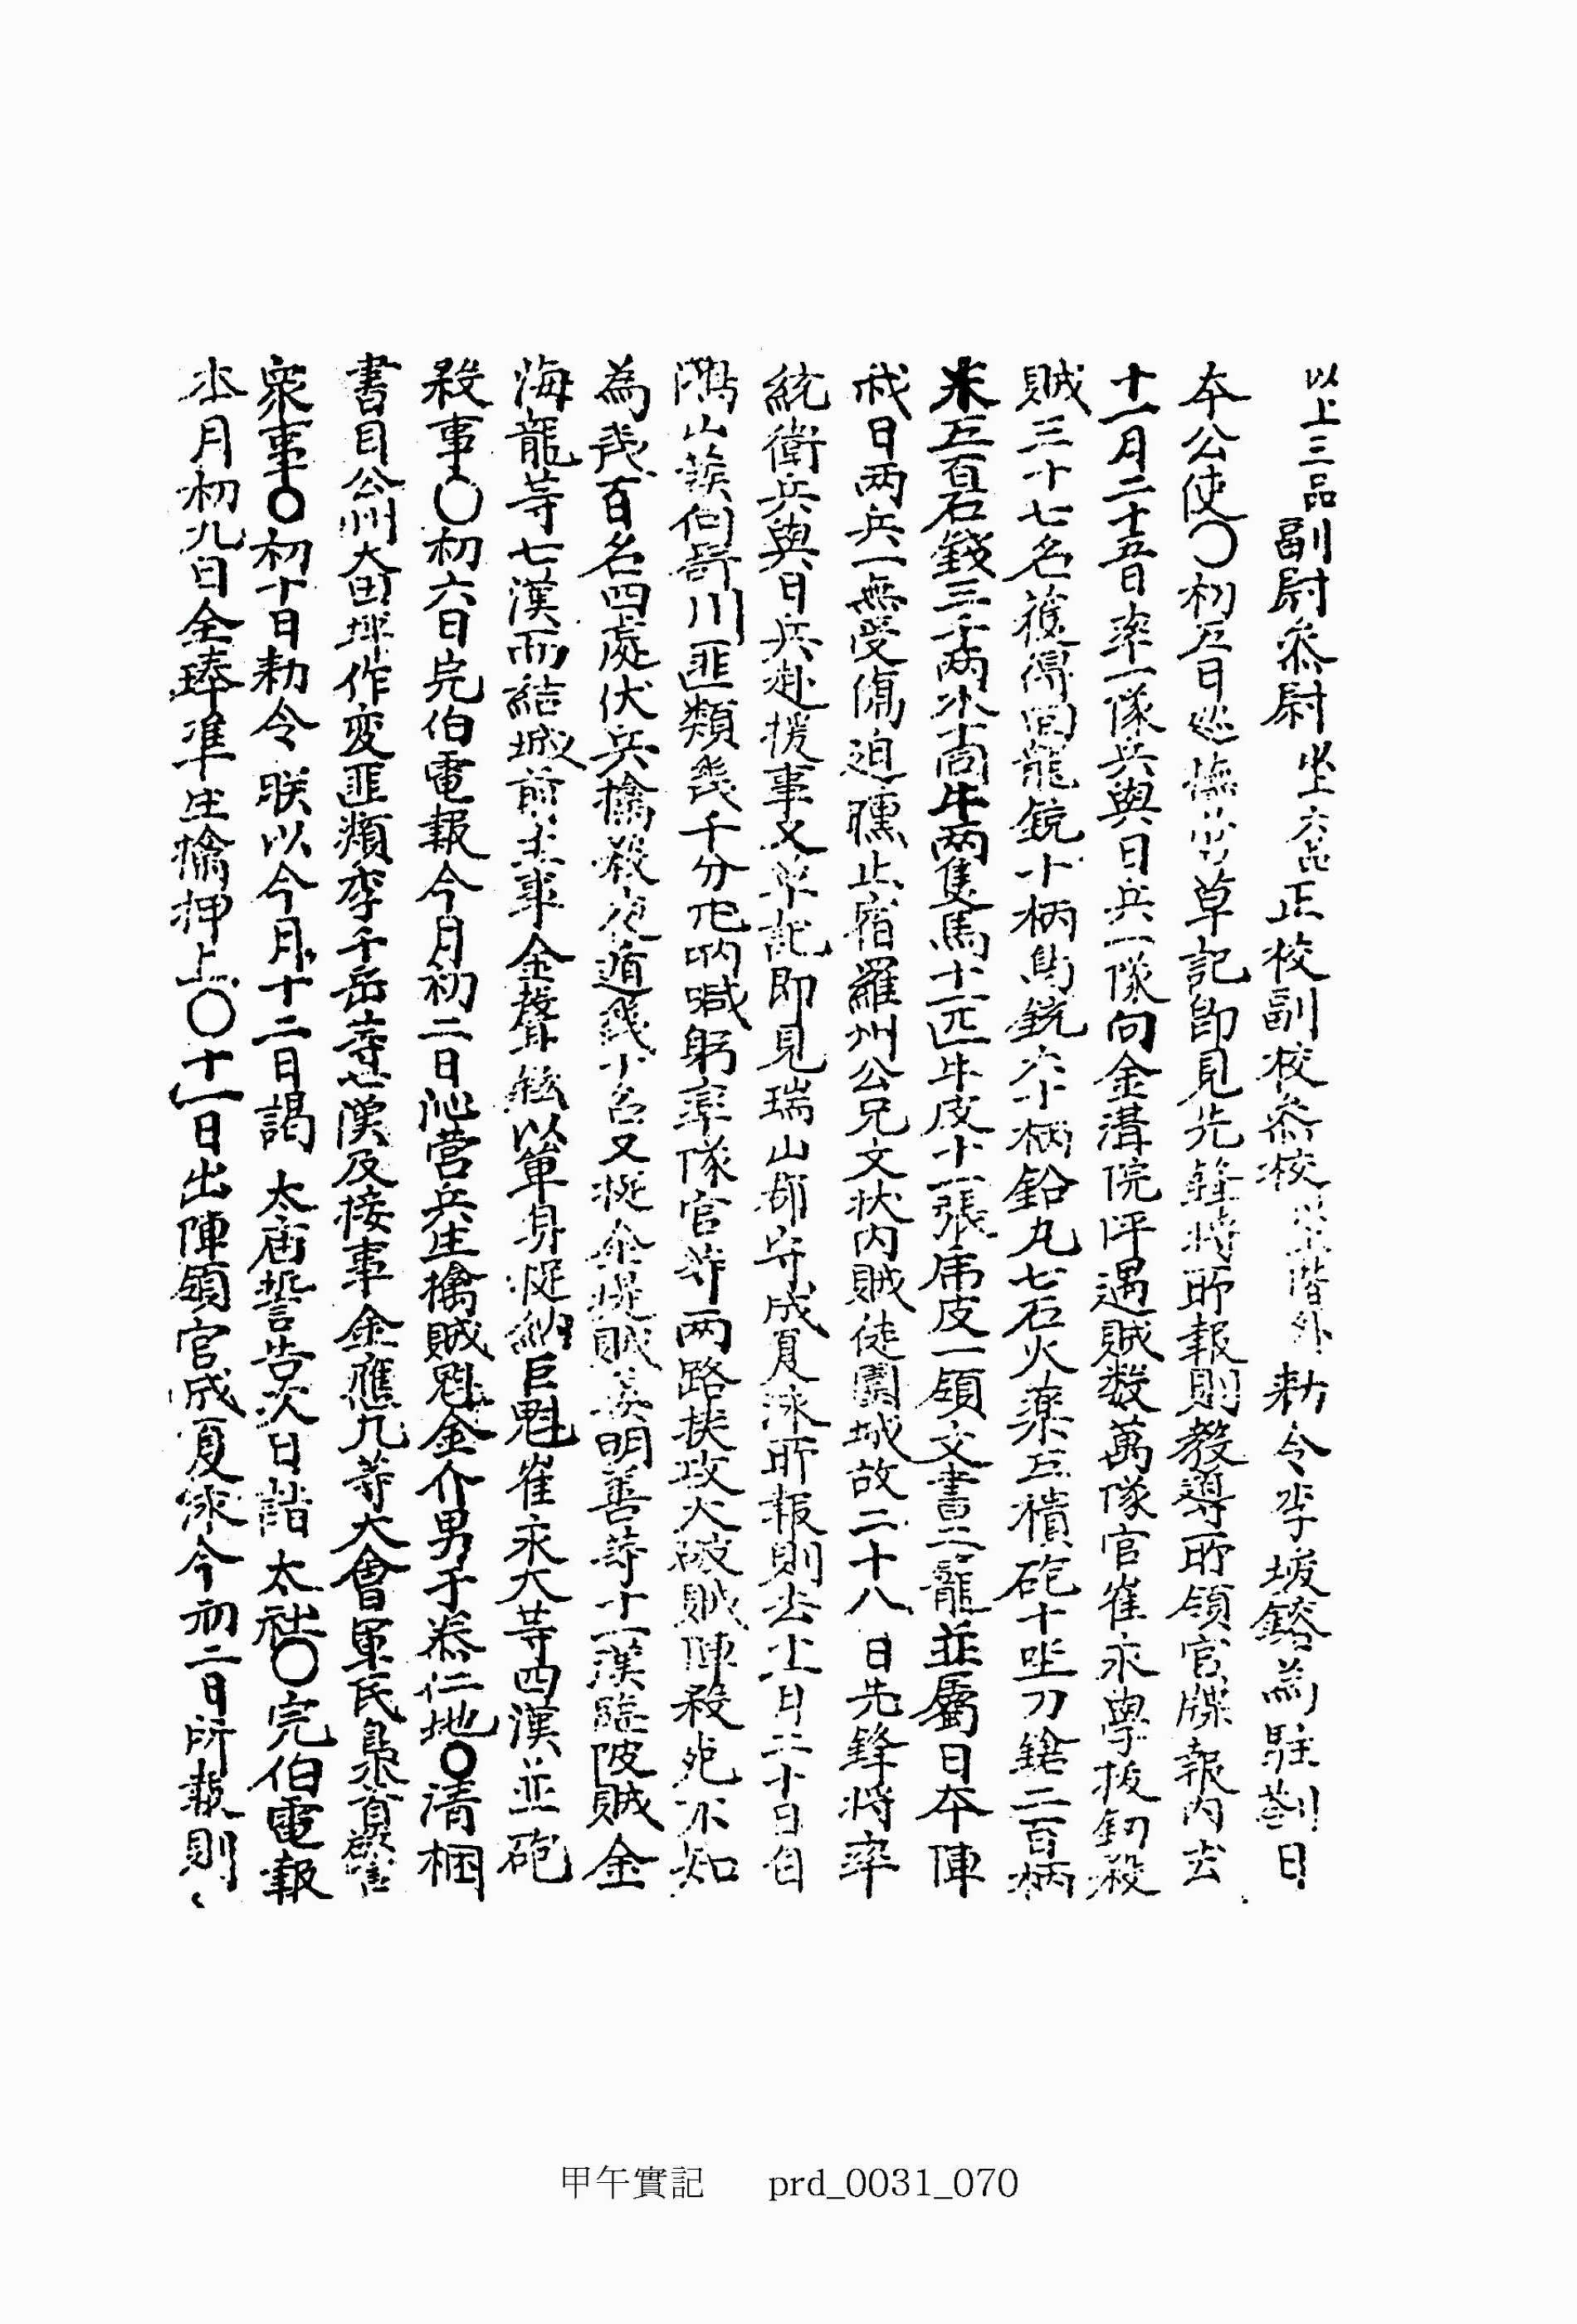 以上三品副尉叅尉 六品正校副校叅校 階外勅令李埈鎔為駐劄日
本公使〇初五日巡撫營草記卽見先鋒將所報則敎導所領官牒報內去
十一月二十五日率一隊兵與日兵一隊向金溝院坪遇賊数萬隊官崔永學拔釰殺
賊三十七名獲得回龍銃十柄鳥銃六十柄鉛丸七石火藥五樻砲十坐刀鎗二百柄
米五百石錢三千両木十同牛両隻馬十一匹牛皮十一張虎皮一領文書二籠並屬日本陣
戎日両兵一無受傷迫曛止宿羅州公兄文状內賊徒圍城故二十八日先鋒將率
統衛兵與日兵赴援事又草記卽見瑞山郡守成夏泳所報則去十一月二十日自
山後向 川匪類幾千分屯吶喊躬率隊官等両路挾攻大破賊陣殺死不知
為幾百名四處伏兵擒殺夜遁幾十名又捉 賊 明善等十一漢臨陂賊金
海龍等七漢而結城前主事金聲 以單身捉納巨魁崔永大等四漢並砲
殺事〇初六日完伯電報今月初二日沁營兵生擒賊魁金介男于泰仁地〇淸梱
書目公州大田坪作変匪類李千岳等七漢及接事金應九等大會軍民梟首警
衆事〇初十日勅令朕以今月十二日謁 太廟誓告次日詣 太社〇完伯電報
本月初九日全琫準生擒押上〇十一日出陣領官成夏泳今初二日所報則
甲午實記 prd_0031_070